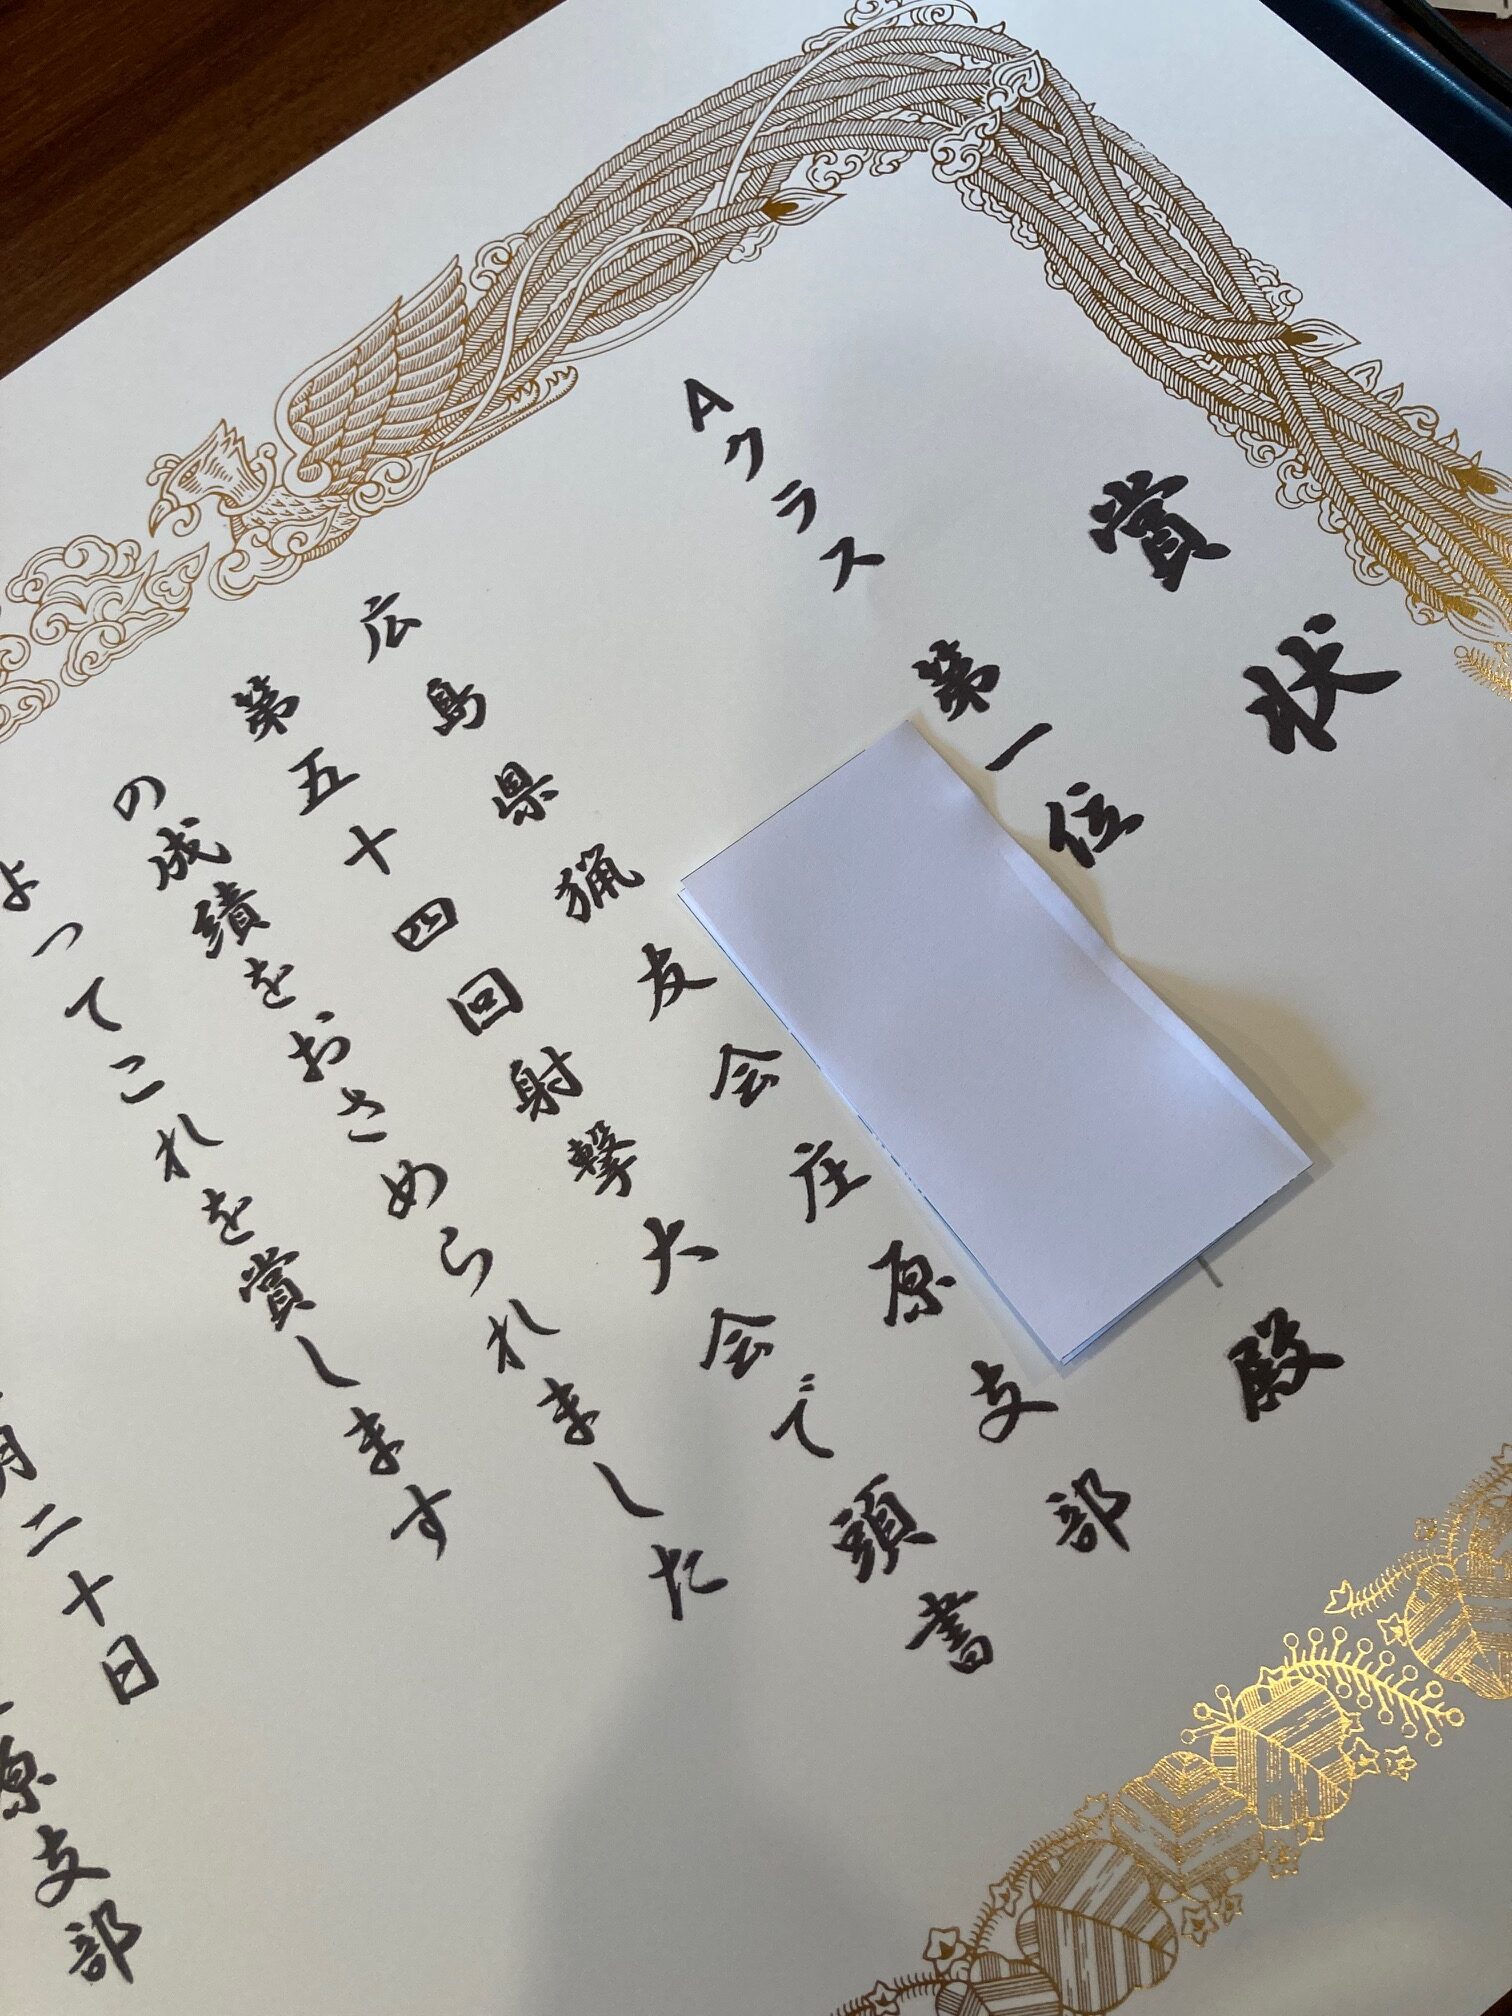 賞状
Aクラス 第一位
殿
広島県猟友会庄原支部
第五十四回射撃大会で頭書
の成績をおさめられました
よってこれを賞します
月二十日
原支部